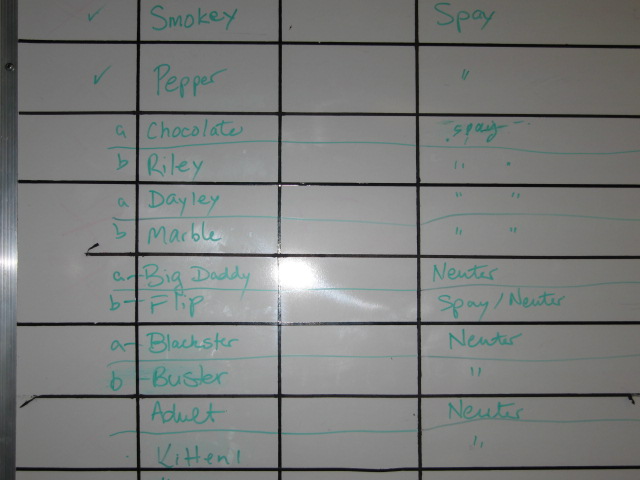 ✓ Smokey Spay
✓ Pepper "
a Chocolate spay
b Riley "
a Dayley " "
b Marble " "
a- Big Daddy Neuter
b- Flip Spay/Neuter
a- Blackster Neuter
b- Buster "
Adult Neuter
Kitten 1 "